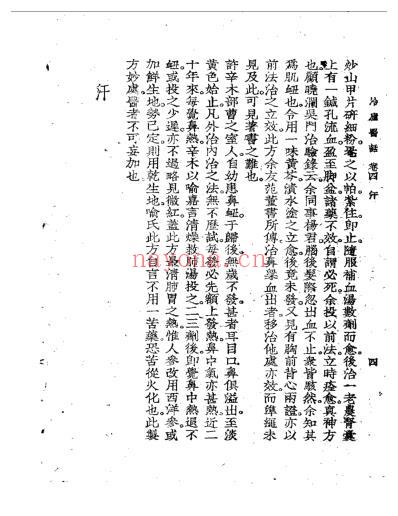 冷廬醫話 卷四 汗 四
妙山甲片研細粉毫之以帕紮住卽止隨服補血湯數劑而愈後治一老農腎囊
上有一鍼孔流血盈至脚盆諸藥不效自謂必死余投以前法立時痊愈眞神方
也顧曉瀾吳門治驗錄云余同事楊君腦後髮際忽出血不止衆皆駭然余知其
爲肌衄也令用一味黃芩漬水塗之立愈後竟未發又見有胸前背心兩證亦以
前法治之立效此方余友范董書所傳治鼻血出者移治他處亦效而繩未
見及此可見著書之難也
許辛木部曹之室人自幼患鼻衄于歸後無歲不發甚者耳目口鼻俱溢出至淡
黃色始止凡外治內治之法無不歷試每發必先額上發熱鼻中氣亦甚熱近二
十年來每覺鼻熱辛木以喻嘉言清燥救肺湯投之二三劑後卽覺鼻中熱退不
衄或投之少遲亦不過略見微紅蓋此方最清肺胃之熱惟人參改用西洋參或
加鮮生地勢已定則用乾生地喻氏此方自言不用一苦藥恐苦從火化也此製
方妙處醫者不可妄加也
汗
nayona.cn